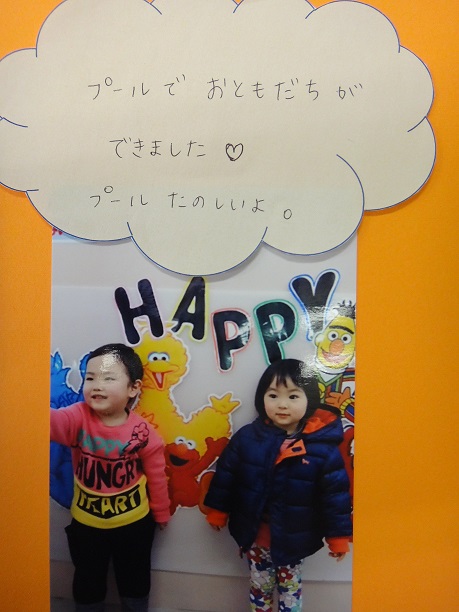 プールで おともだちが
できました♡
プール たのしいよ。
HAPPY
HAPPY
HUNGRY
HEART